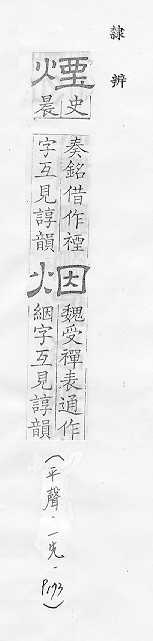 隸辨
煙
史
晨
奏銘借作禋
字互見諄韻
烟
魏受禪表通作
絪字互見諄韻
(平聲.一先.P173)